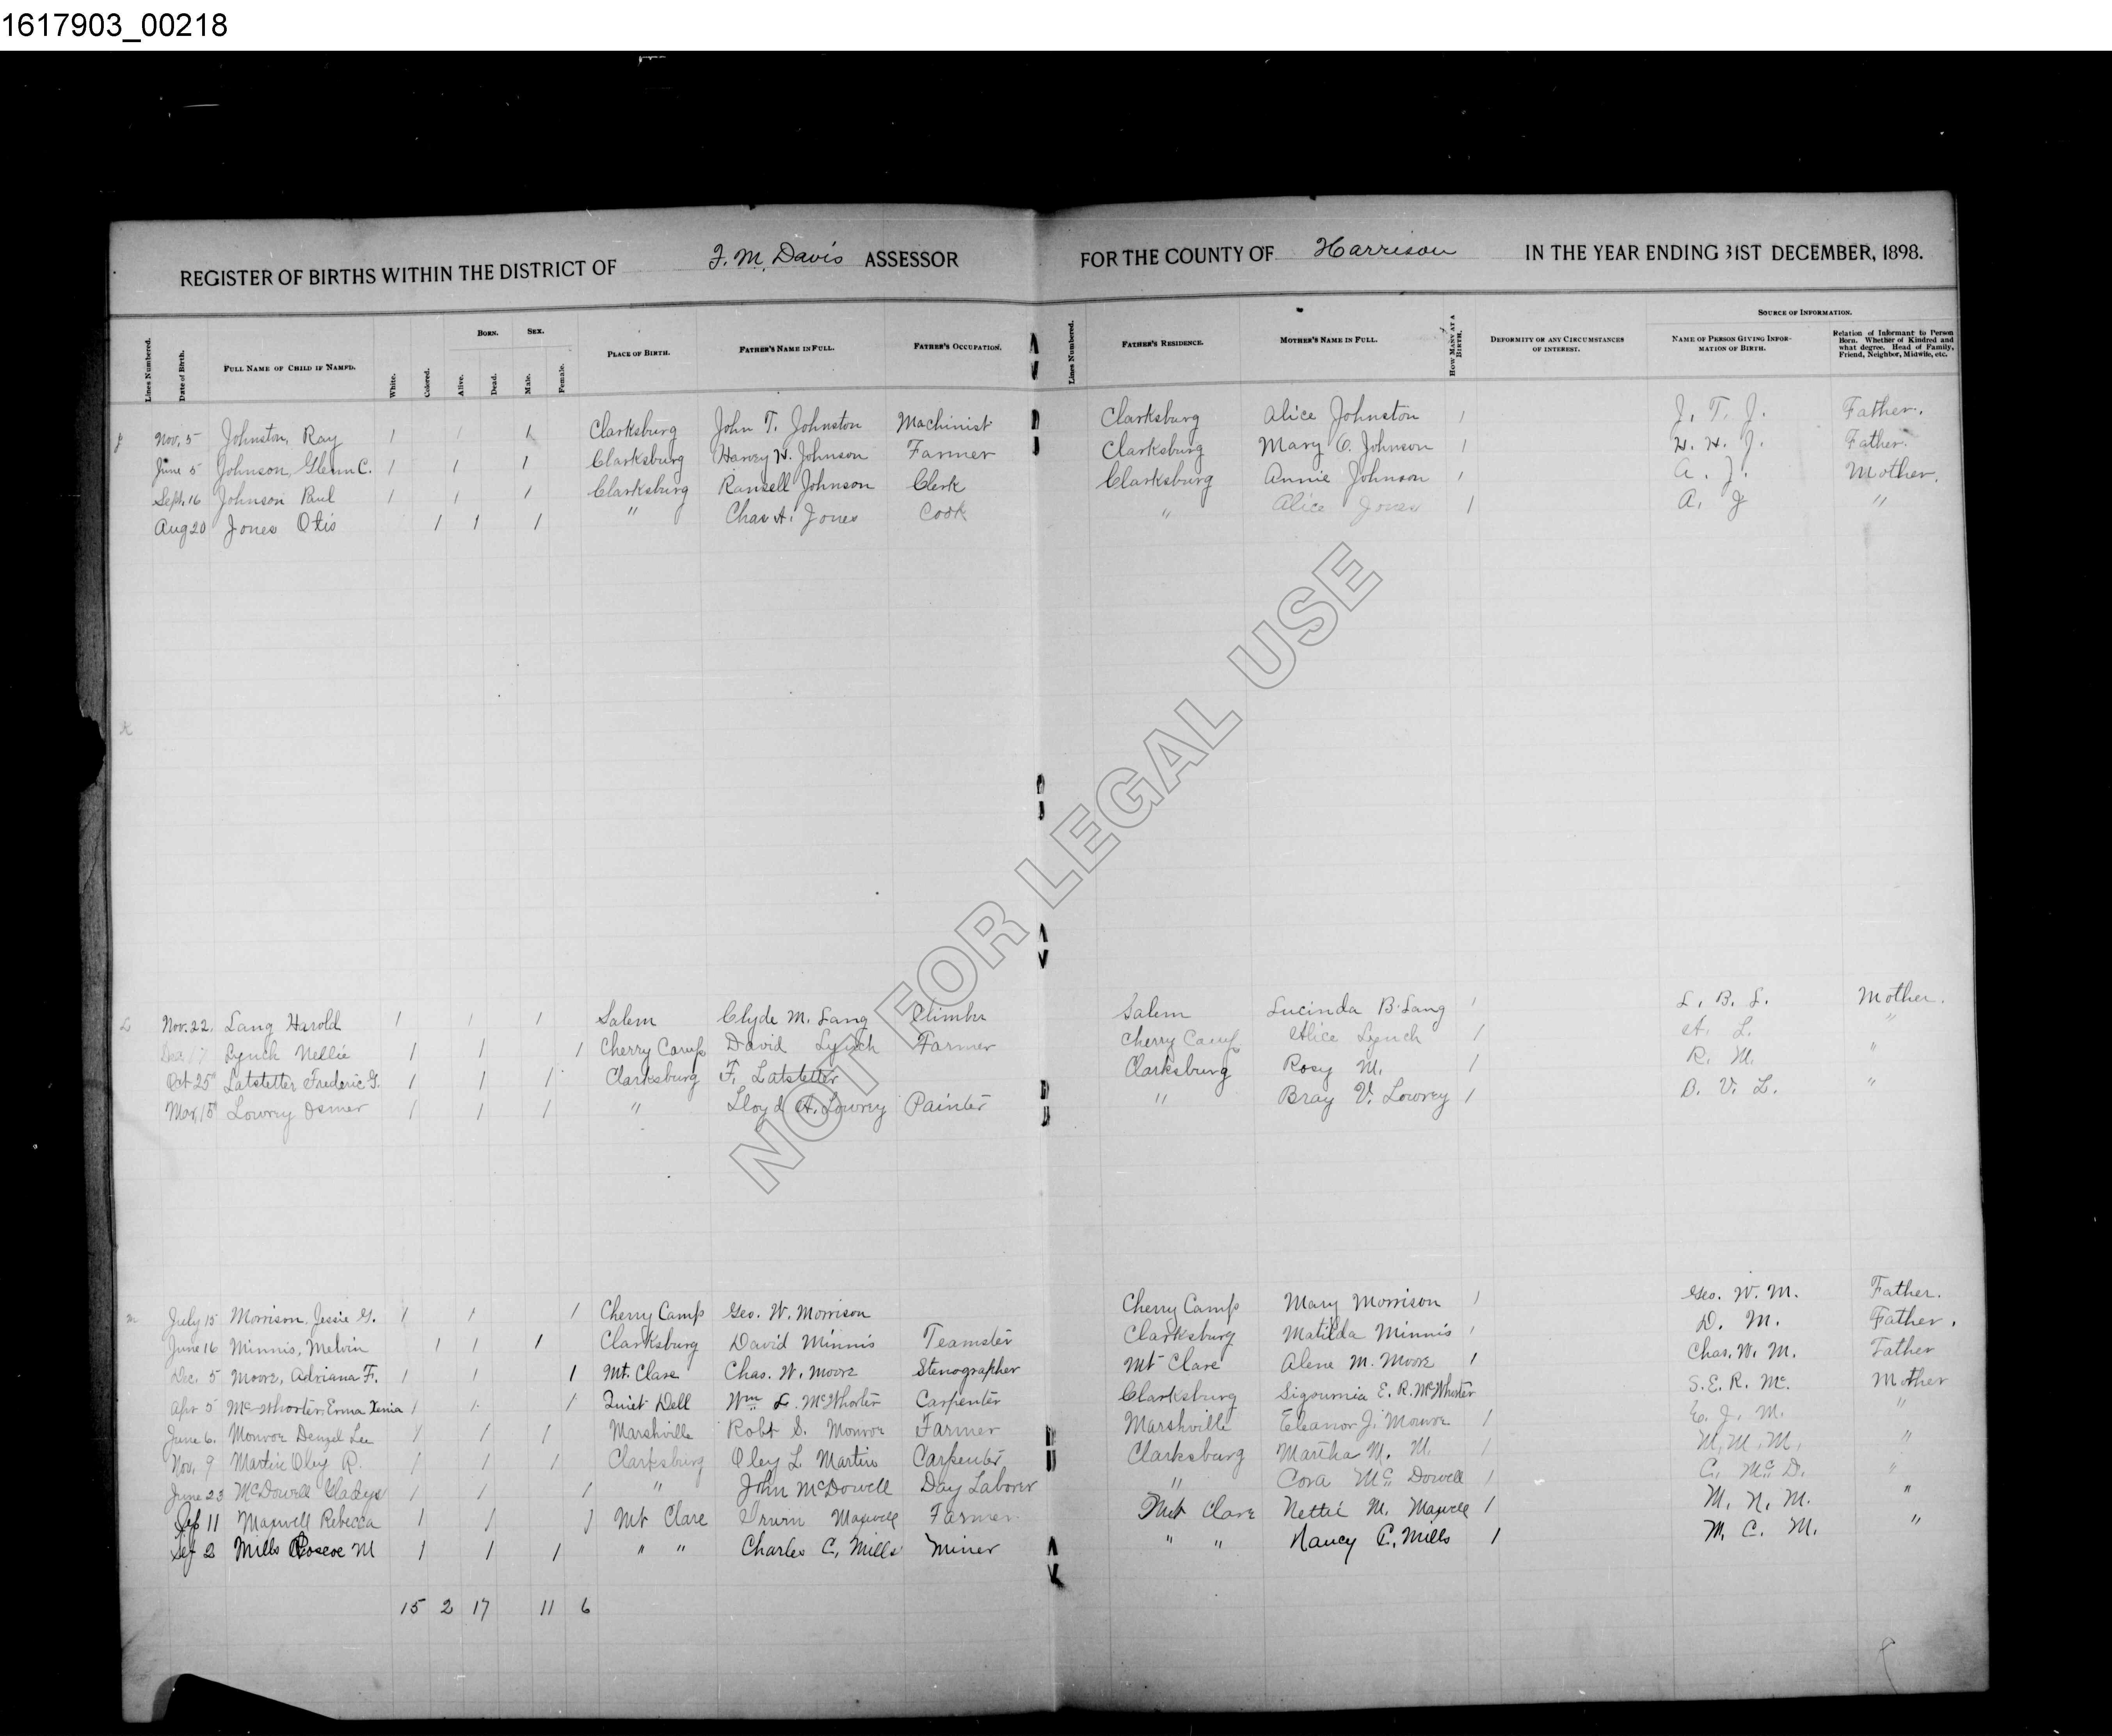 1617903_00218
REGISTER OF BIRTHS WITHIN THE DISTRICT OF F. M. Davis ASSESSOR FOR THE COUNTY OF Harrison IN THE YEAR ENDING 31ST DECEMBER, 1898.
BORN. SEX. SOURCE OF INFORMATION.
Lines Numbered. Date of Birth. FULL NAME OF CHILD IF NAMED. White. Colored. Alive. Dead. Male. Female. PLACE OF BIRTH. FATHER'S NAME IN FULL. FATHER'S OCCUPATION. Lines Numbered. FATHER'S RESIDENCE. MOTHER'S NAME IN FULL. HOW MANY AT A BIRTH. DEFORMITY OR ANY CIRCUMSTANCES OF INTEREST. NAME OF PERSON GIVING INFORMATION OF BIRTH. Relation of Informant to Person Born. Whether of Kindred and what degree. Head of Family, Friend, Neighbor, Midwife, etc.
J Nov. 5 Johnston, Ray 1 1 1 Clarksburg John T. Johnston Machinist Clarksburg Alice Johnston 1 J. T. J. Father.
June 5 Johnson, Glenn C. 1 1 1 Clarksburg Harvey H. Johnson Farmer Clarksburg Mary O. Johnson 1 H. H. J. Father.
Sept. 16 Johnson Paul 1 1 1 Clarksburg Ransell Johnson Clerk Clarksburg Annie Johnson 1 A. J. Mother.
Aug 20 Jones Otis 1 1 1 " Chas A. Jones Cook " Alice Jones 1 A. J "
K
L Nov. 22. Lang Harold 1 1 1 Salem Clyde M. Lang Salem Lucinda B. Lang 1 L. B. L. Mother.
Dec 17 Lynch Nellie 1 1 1 Cherry Camp David Lynch Farmer Cherry Camp Alice Lynch 1 A. L. "
Oct 25 Latstetter Frederic G. 1 1 1 Clarksburg F. Latstetter Clarksburg Rosy M. 1 R. M. "
Mar, 15 Lowrey Osmer 1 1 1 " Lloyd A. Lowrey Painter " Bray V. Lowrey 1 B. V. L. "
M July 15 Morrison, Jessie G. 1 1 1 Cherry Camp Geo. W. Morrison Cherry Camp Mary Morrison 1 Geo. W. M. Father.
June 16 Minnis, Melvin 1 1 1 Clarksburg David Minnis Teamster Clarksburg Matilda Minnis 1 D. M. Father.
Dec. 5 Moore, Adriana F. 1 1 1 Mt. Clare Chas. W. Moore Stenographer Mt Clare Alene M. Moore 1 Chas. W. M. Father
Apr 5 McWhorter, Erma Xenia 1 1 1 Quiet Dell Wm L. McWhorter Carpenter Clarksburg Sigournia E. R. McWhorter S. E. R. Mc. Mother
June 6. Monroe Denzel Lee 1 1 1 Marshville Robt S. Monroe Farmer Marshville Eleanor J. Monroe 1 E. J. M. "
Nov. 9 Martin Oley R. 1 1 1 Clarksburg Oley L Martin Carpenter Clarksburg Martha M. M. 1 M. M. M. "
June 23 McDowell Gladys 1 1 1 " John McDowell Day Laborer " Cora McDowell 1 C. McD. "
Sep 11 Maxwell Rebecca 1 1 1 Mt Clare Irvin Maxwell Farmer Mt Clare Nettie M. Maxwell 1 M. N. M. "
Sep 2 Mills Roscoe M 1 1 1 " " Charles C. Mills Miner " " Nancy C. Mills 1 M. C. M. "
15 2 17 11 6
NOT FOR LEGAL USE